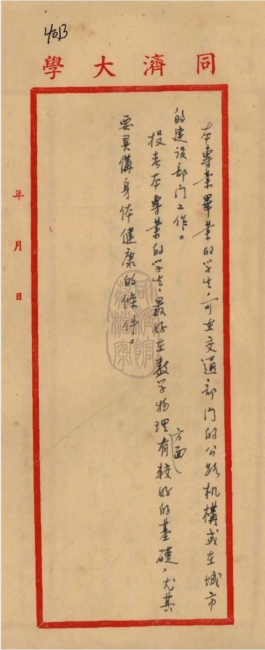 4013
同濟大學
本專業畢業的学生，可在交通部门的公路机構或在城市
的建设部门工作。
投考本專業的学生，最好在数学物理方面有較好的基礎，尤其
要具備身体健康的條件。
年月日